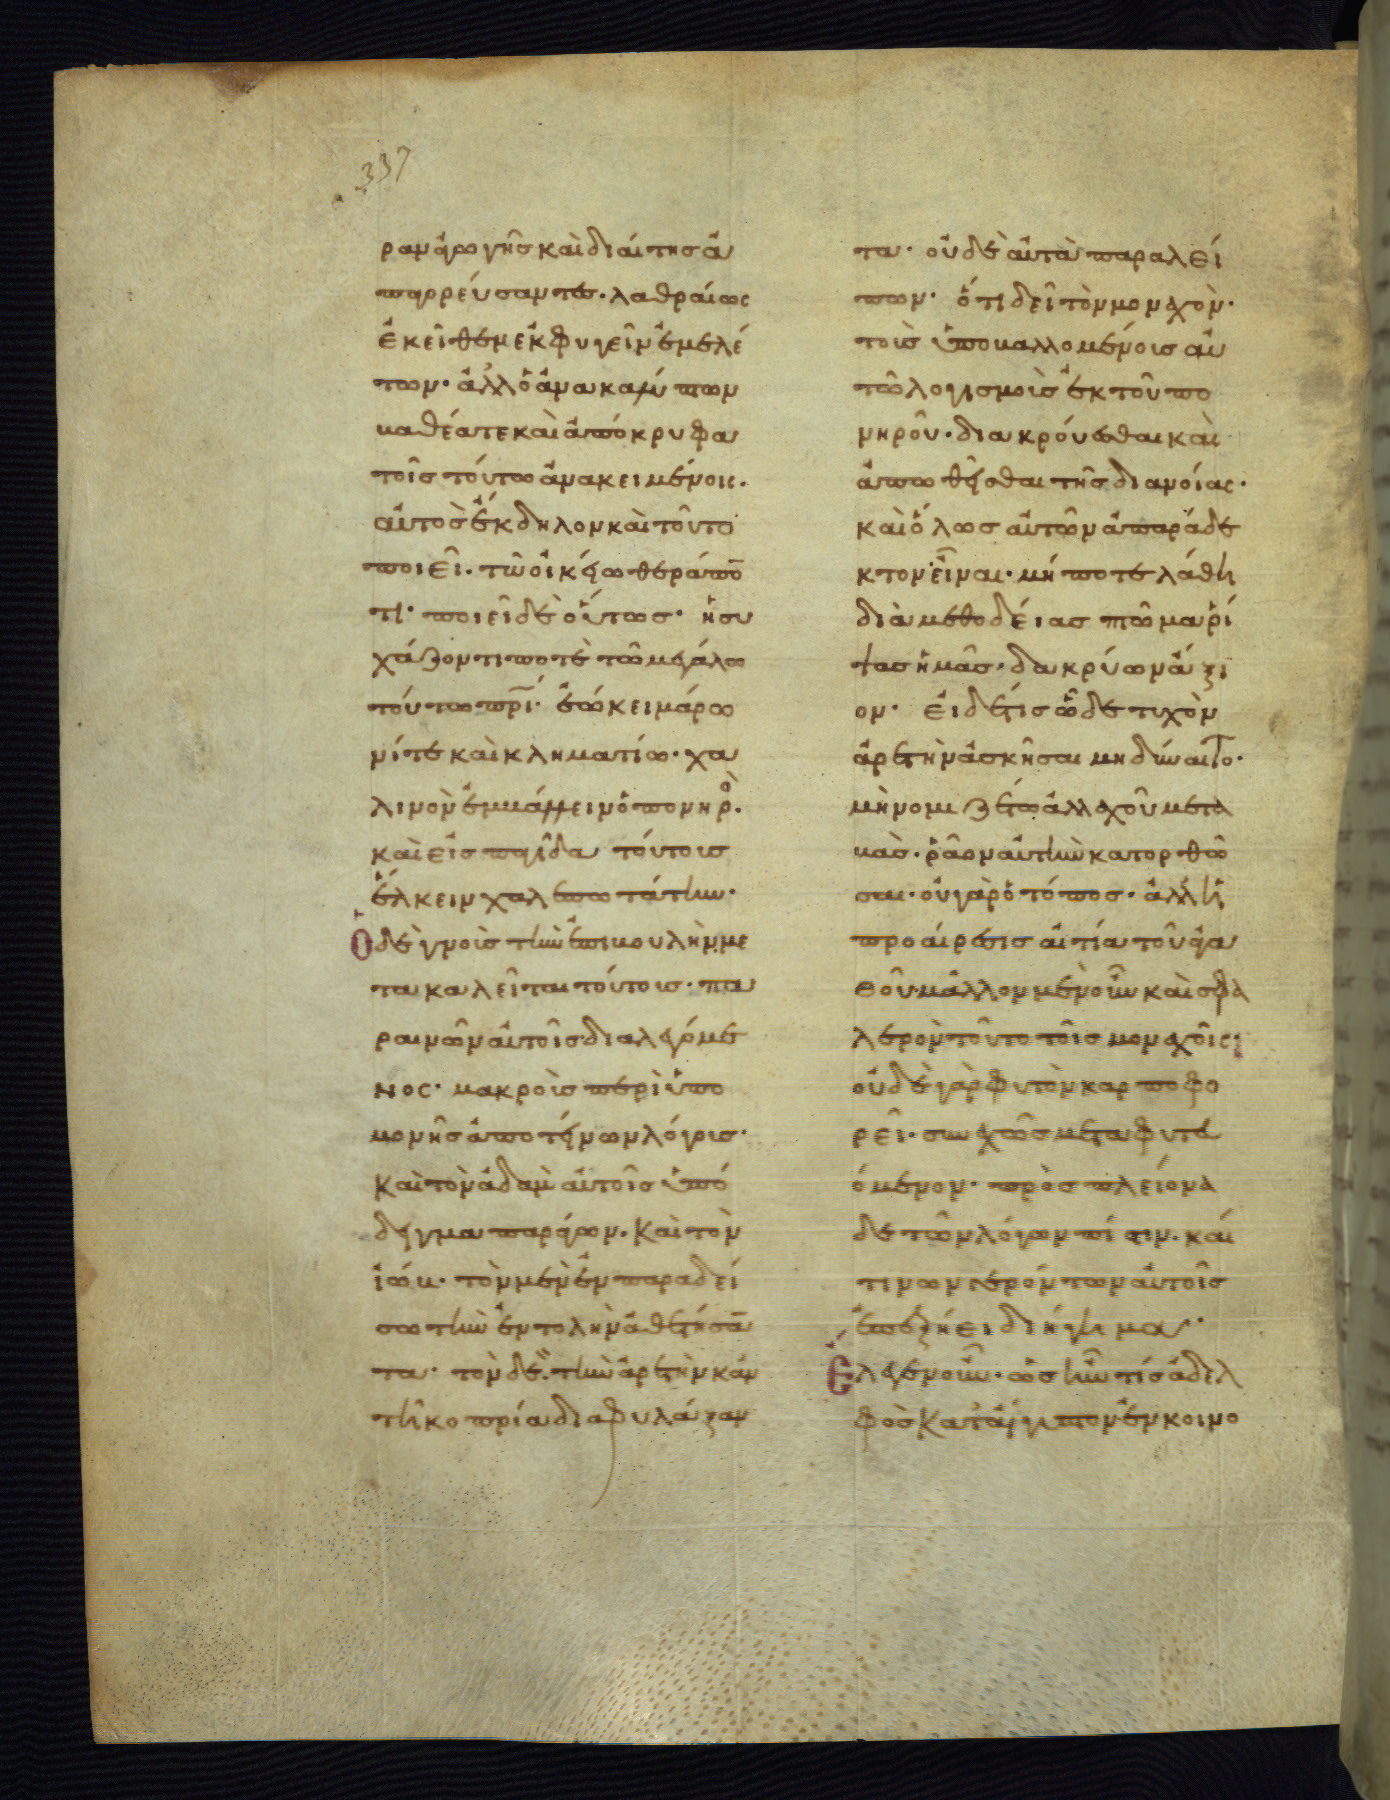 337
ραν ἀγωγῆς καὶ διαίτης ἀ
παγορεύσαντες· λαθραίως
ἐκεῖθεν ἐκφυγεῖν ἐμελέ
των· ἀλλ' ὁ ἀνακαλύπτων
βαθέα τε καὶ ἀπόκρυφα
τοῖς τούτω ἀνακειμένοις.
αὐτὸς ἔκδηλον καὶ τοῦτο
ποιεῖ. τῶ οἰκείω θεράπο
τι· ποιεῖ δὲ οὕτως· ἡσυ
χάζοντι ποτὲ τῶ μεγάλω
τούτω πρί·
νί τε καὶ κληματίω· χα
λινὸν ἐμβάλλειν ὁ πονηρὸς.
καὶ εἰς παγίδα τούτοις
ἕλκειν χαλεπωτάτην·
Ὁ δὲ γνοὺς τὴν ἐπιβουλὴν με
τακαλεῖται τούτοις· πα
ραινῶν αὐτοῖς διαλεγόμε
νος· μακροῖς περὶ ὑπο
μονῆς ἀποτείνων λόγοις·
καὶ τὸν ἀδὰμ αὐτοῖς ὑπό
δειγμα παράγων. καὶ τὸν
ἰώβ· τὸν μὲν ἐν παραδεί
σω τὴν ἐντολὴν ἀθετήσα
τα· τὸν δὲ τὴν ἀρετὴν κἀν
τῆ κοπρία διαφυλάξαν
τα· οὐδὲ αὐτὰ παραλεί
πων· ὅτι δεῖ τὸν μοναχὸν·
τοῖς ὑποβαλλομένοις αὐ
τῶ λογισμοῖς ἐκ τοῦ πο
νηροῦ· διακρούεσθαι καὶ
ἀπωθεῖσθαι τῆς διανοίας·
καὶ ὅλως αὐτῶν ἀπαράδε
κτον εἶναι· μή ποτε λάθη
διὰ μεθοδείας πτῶμα ῥί
ψας ἡμᾶς· δακρύων ἄξι
ον· εἰ δέ τις ὧδε τυχὸν
ἀρετὴν ἀσκῆσαι μὴ δύναιτο·
μὴ νομιζέτω ἀλλαχοῦ μετα
βὰς· ῥᾶον αὐτὴν κατορθῶ
σαι· οὐ γὰρ ὁ τόπος· ἀλλ' ἡ
προαίρεσις αἰτία τοῦ ἀγα
θοῦ· μᾶλλον μὲν οὖν καὶ σφα
λερὸν τοῦτο τοῖς μοναχοῖς·
οὐδὲ γὰρ φυτὸν καρποφο
ρεῖ· συνεχῶς μεταφυτευ
όμενον· πρὸς πλείονα
δὲ τῶν λόγων πίστιν· καί
τινων γερόντων αὐτοῖς
ἐπεξήει διήγημα··
Ἔλεγεν οὖν· ὡς ἦν τίς ἀδελ
φὸς κατ' αἴγυπτον ἐν κοινο